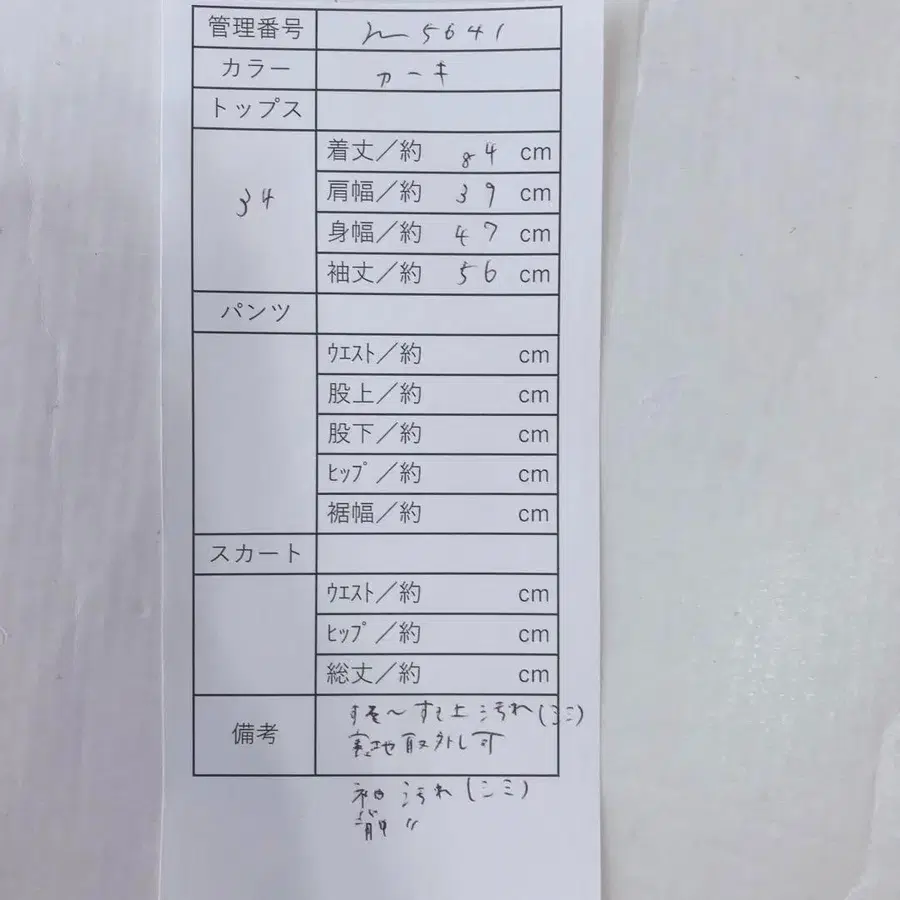 管理番号 m5641
カラー カーキ
トップス
34
着丈／約 84 cm
肩幅／約 39 cm
身幅／約 47 cm
袖丈／約 56 cm
パンツ
ｳｴｽﾄ／約 cm
股上／約 cm
股下／約 cm
ﾋｯﾌﾟ／約 cm
裾幅／約 cm
スカート
ｳｴｽﾄ／約 cm
ﾋｯﾌﾟ／約 cm
総丈／約 cm
備考
すそ〜すそ上汚れ(シミ)
裏地取外し可
袖汚れ(シミ)
背中 〃